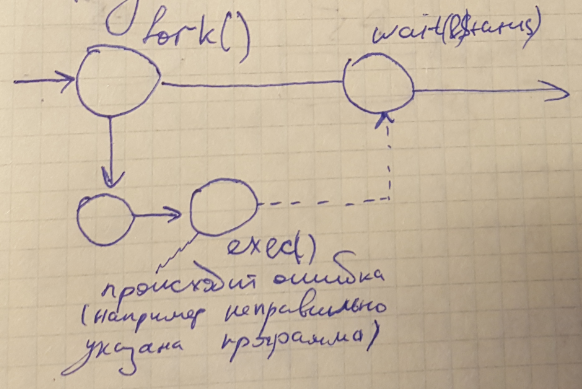 fork()
wait(&статус)
exec()
происходит ошибка
(например неправильно
указана программа)